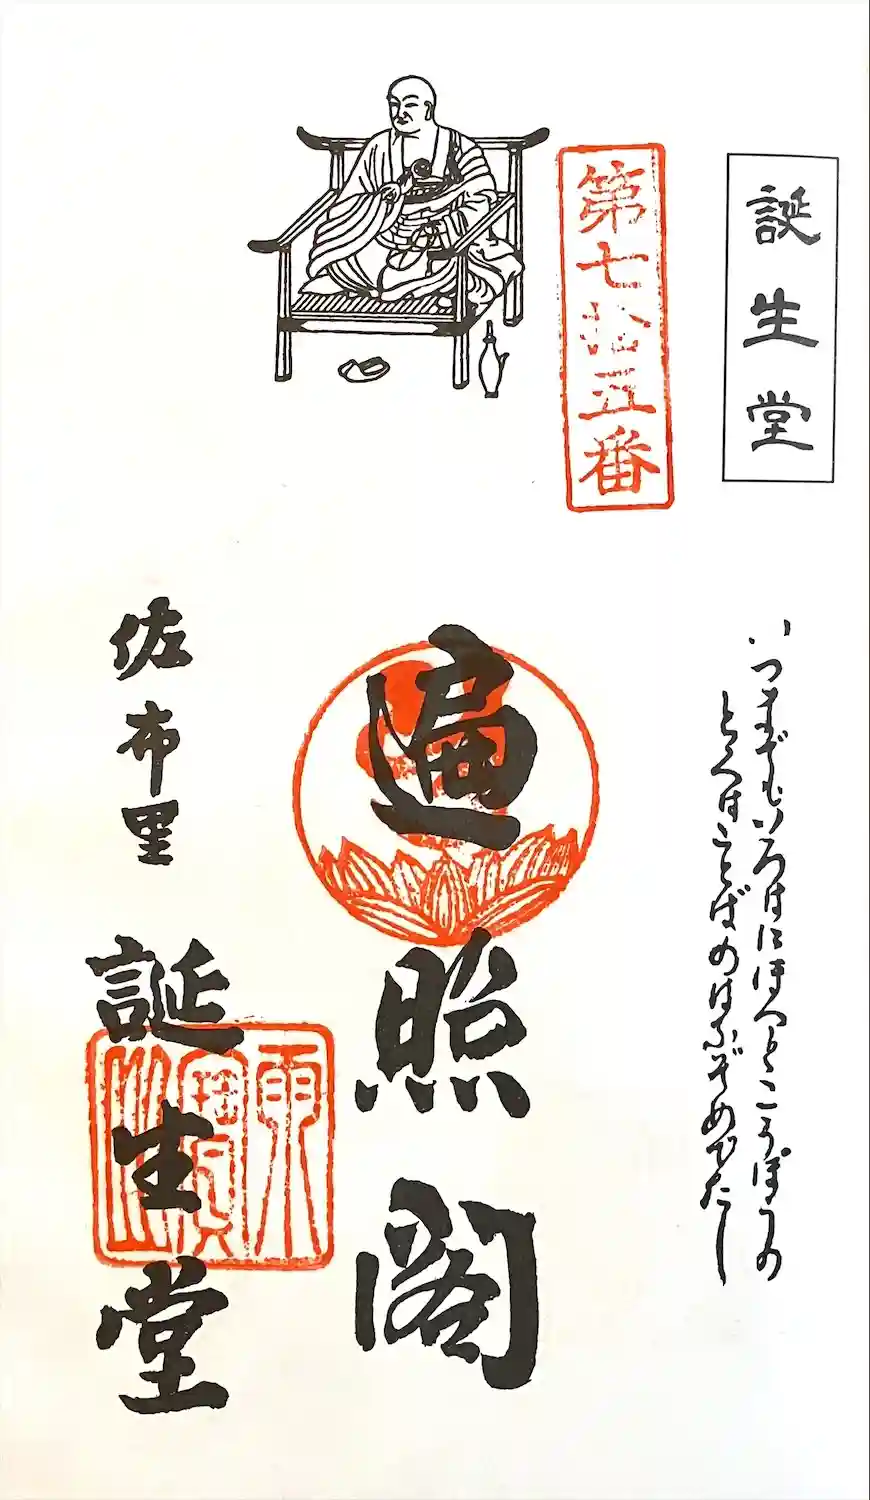 誕生堂
第七拾五番
いつまでもいろはにほへとこうぼうの
とくはことばのはなぞめでたし
遍照閣
佐布里
誕生堂
雨寳山